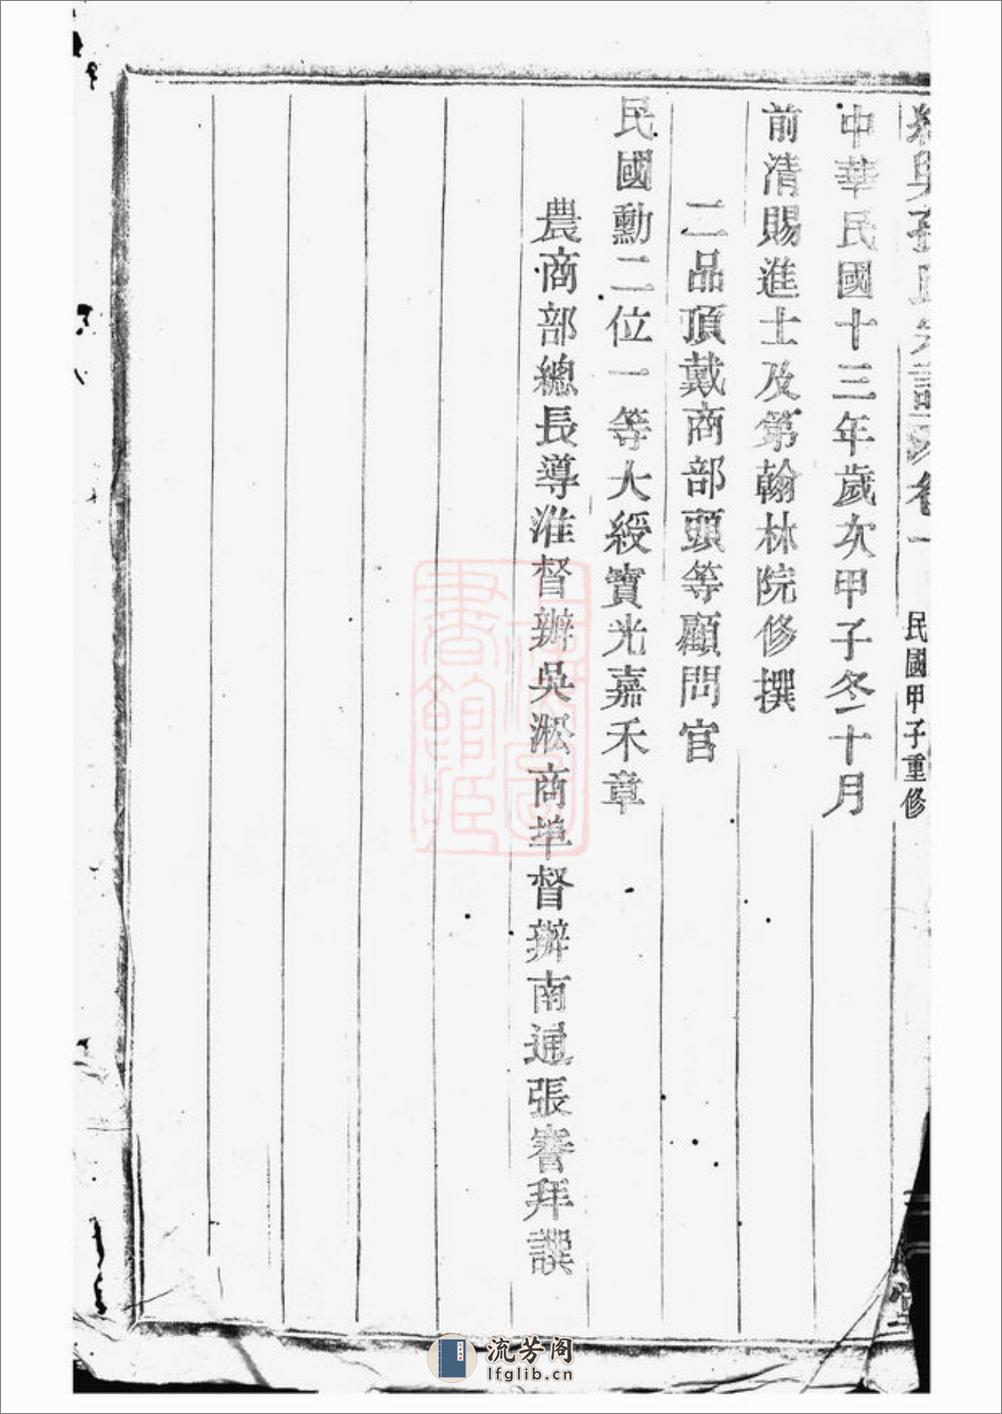 氏宗譜 卷一 民國甲子重修
中華民國十三年歲次甲子冬十月
前清賜進士及第翰林院修撰
二品頂戴商部頭等顧問官
民國勳二位一等大綬寶光嘉禾章
農商部總長導淮督辦吳淞商埠督辦南通張謇拜譔
堂
上海圖書館藏
流芳阁
lfglib.cn